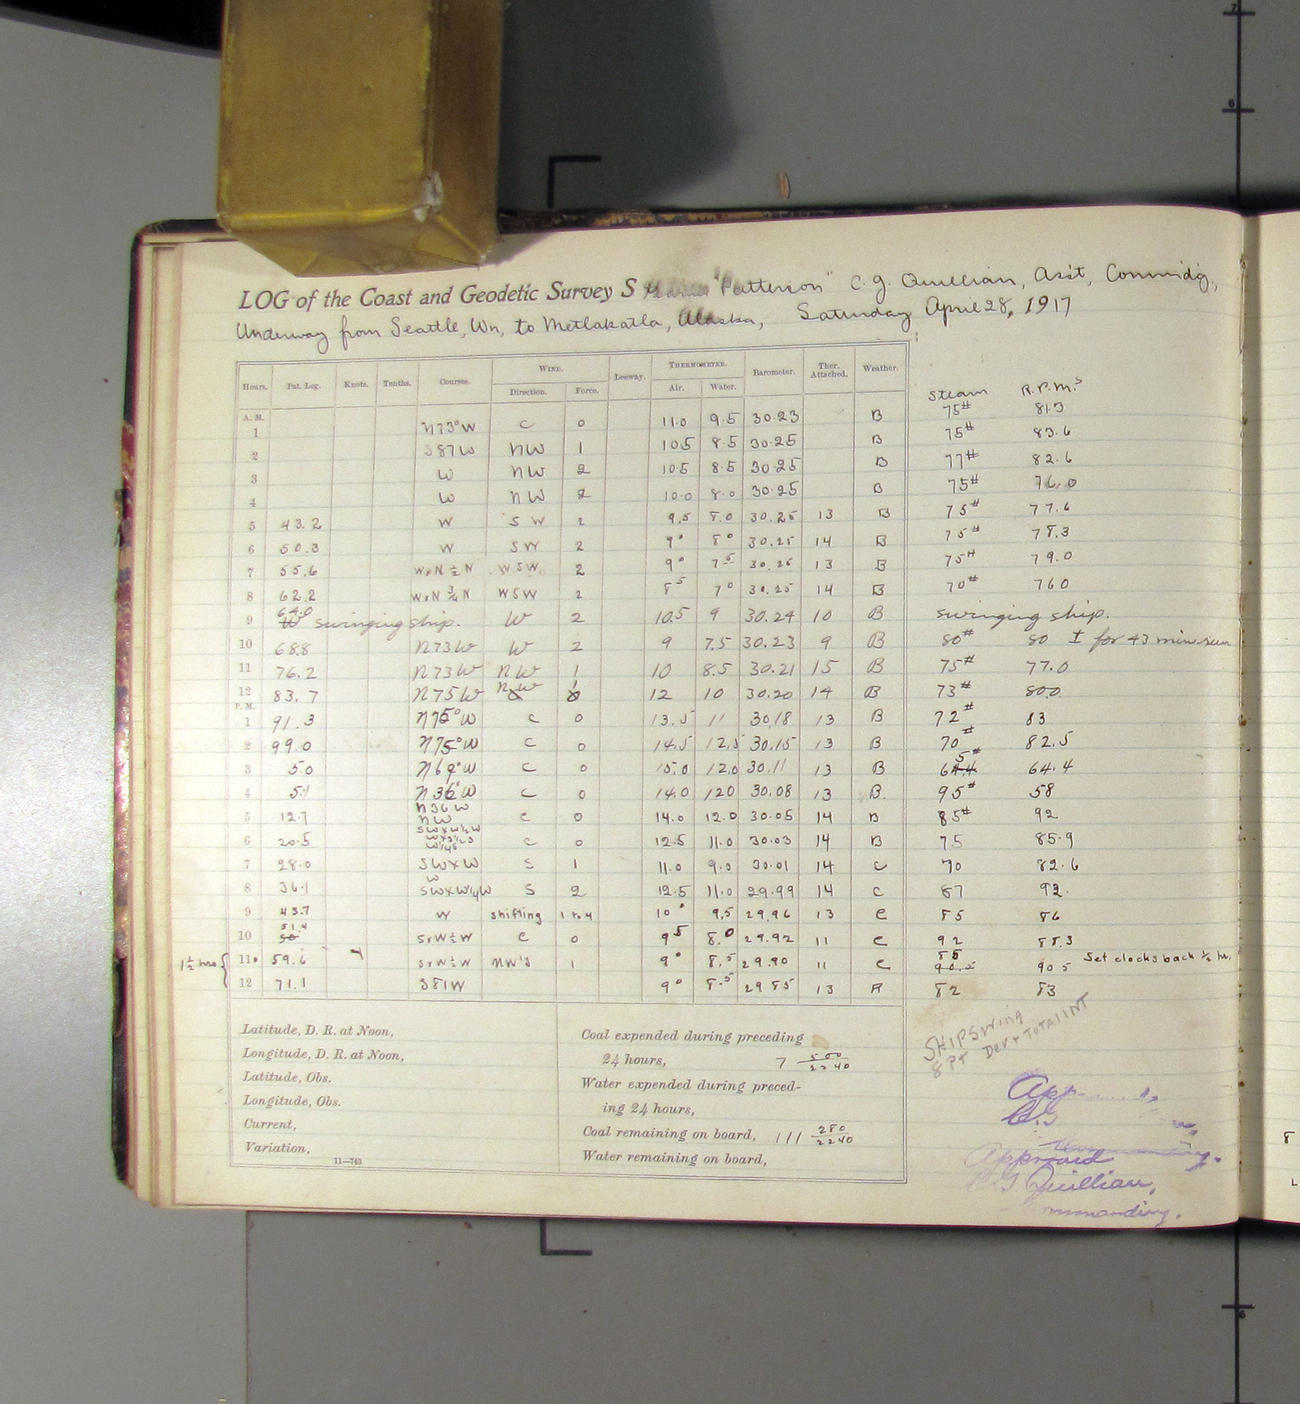 LOG of the Coast and Geodetic Survey S "Patterson" C. G. Quillian, Ass't, Commd'g,
Underway from Seattle, Wn, to Metlakatla, Alaska, Saturday April 28, 1917
Hours. Pat. Log. Knots. Tenths. Courses. WIND. Direction. Force. Leeway. THERMOMETER. Air. Water. Barometer. Ther. Attached. Weather. Steam R.P.M.s
A. M.
1 N73°W C 0 11.0 9.5 30.23 B 75# 81.3
2 S87W NW 1 10.5 8.5 30.25 B 75# 83.6
3 W NW 2 10.5 8.5 30.25 B 77# 82.6
4 W NW 2 10.0 8.0 30.25 B 75# 76.0
5 43.2 W SW 2 9.5 8.0 30.25 13 B 75# 77.6
6 50.3 W SW 2 9° 8° 30.25 14 B 75# 78.3
7 55.6 WxN ½ N WSW 2 9° 7.5 30.26 13 B 75# 79.0
8 62.2 WxN ¾ N WSW 2 8.5 7° 30.25 14 B 70# 760
9 64.0 swinging ship. W 2 10.5 9 30.24 10 B swinging ship.
10 68.8 N73W W 2 9 7.5 30.23 9 B 80# 80 I for 43 min run
11 76.2 N73W NW 1 10 8.5 30.21 15 B 75# 77.0
12 83.7 N75W NW 1 12 10 30.20 14 B 73# 80.0
P. M.
1 91.3 N75°W C 0 13.5 11 30.18 13 B 72# 83
2 99.0 N75°W C 0 14.5 12.5 30.15 13 B 70# 82.5
3 5.0 N69°W C 0 15.0 12.0 30.11 13 B 65# 64.4
4 5.1 N36°W C 0 14.0 120 30.08 13 B. 95# 58
5 12.7 N36W NW C 0 14.0 12.0 30.05 14 B 85# 92
6 20.5 SWxW½W C 0 12.5 11.0 30.03 14 B 75 85.9
7 28.0 SWxW S 1 11.0 9.0 30.01 14 C 70 82.6
8 36.1 W SWxW¼W S 2 12.5 11.0 29.99 14 C 87 92.
9 43.7 W shifting 1 to 4 10° 9.5 29.96 13 C 85 86
10 51.4 SxW½W C 0 9.5 8.0 29.92 11 C 92 88.3
1½ hrs { 11 59.6 SxW½W NW'd 1 9° 8.5 29.90 11 C 85 90.5 Set clocks back ½ hr.
12 71.1 S81W 9° 8.5 29.85 13 R 82 83
Latitude, D. R. at Noon,
Longitude, D. R. at Noon,
Latitude, Obs.
Longitude, Obs.
Current,
Variation,
11—763
Coal expended during preceding
24 hours, 7 500/2240
Water expended during preced-
ing 24 hours,
Coal remaining on board, 111 280/2240
Water remaining on board,
SHIP Swing
8 PT Dev + Total INT
App
C.G
Approved
C G Quillian,
Commanding.